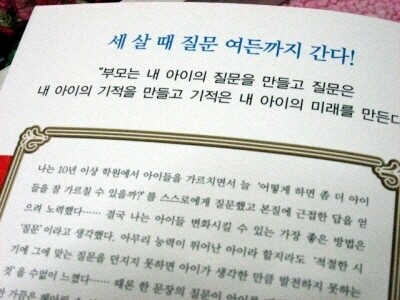 세 살 때 질문 여든까지 간다!
"부모는 내 아이의 질문을 만들고 질문은
내 아이의 기적을 만들고 기적은 내 아이의 미래를 만든다
나는 10년 이상 학원에서 아이들을 가르치면서 늘 '어떻게 하면 좀 더 아이
들을 잘 가르칠 수 있을까?'를 스스로에게 질문했고 본질에 근접한 답을 얻
으려 노력했다…… 결국 나는 아이들 변화시킬 수 있는 가장 좋은 방법은
'질문'이라고 생각했다. 아무리 능력이 뛰어난 아이라 할지라도 '적절한 시
기에 그에 맞는 질문을 던지지 못하면 아이가 생각한 만큼 발전하지 못하는
것'을 수없이 느꼈다…… 때론 한 문장의 질문이 아이를